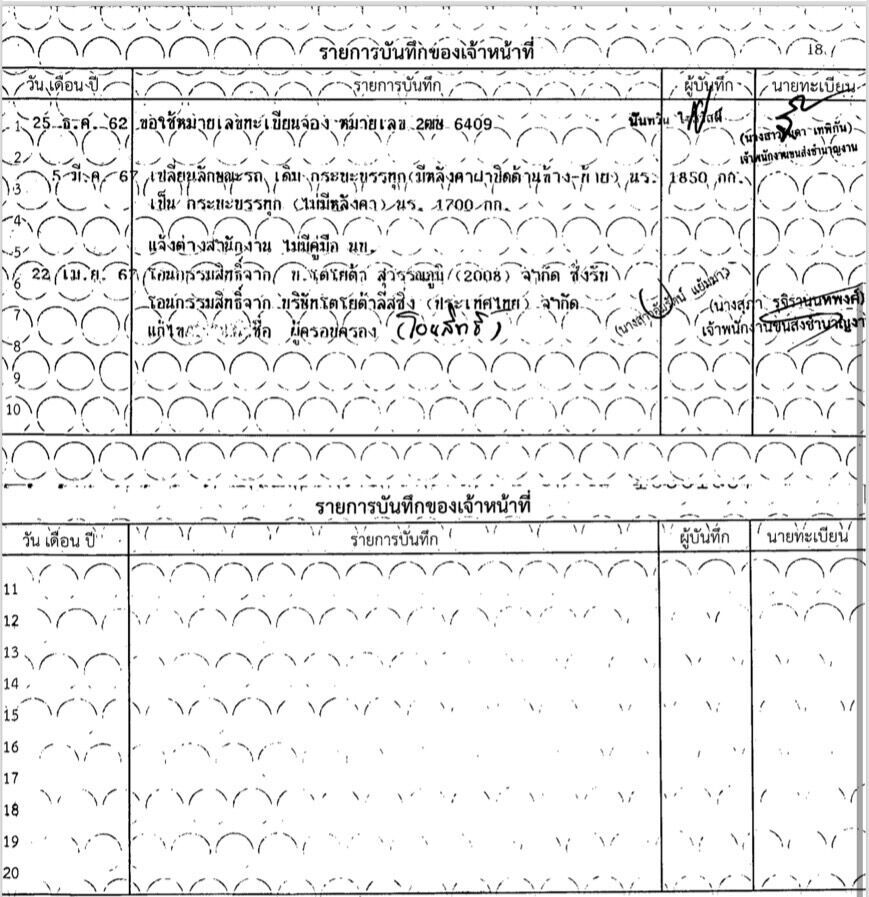 รายการบันทึกของเจ้าหน้าที่
18
วัน เดือน ปี รายการบันทึก ผู้บันทึก นายทะเบียน
1 25 ธ.ค. 62 ขอใช้หมายเลขทะเบียนจอง หมายเลข 2ฒษ 6409 นันทวัน
2
(นางสาว เทพิกัน)
เจ้าพนักงานขนส่งชำนาญงาน
3 5 มี.ค. 67 เปลี่ยนลักษณะรถ เดิม กระบะบรรทุก(มีหลังคาฝาปิดด้านข้าง-ท้าย) นร. 1850 กก.
เป็น กระบะบรรทุก (ไม่มีหลังคา) นร. 1700 กก.
4
5 แจ้งต่างสำนักงาน ไม่มีคู่มือ นข.
6 22 เม.ย. 67 โอนกรรมสิทธิ์จาก บ.โตโยต้า สุวรรณภูมิ (2008) จำกัด ซึ่งรับ
7 โอนกรรมสิทธิ์จาก บริษัทโตโยต้าลีสซิ่ง (ประเทศไทย) จำกัด
(นางสุภา รุจิรานนทพงศ์)
แก้ไข ชื่อ ผู้ครอบครอง (โอนสิทธิ์)
เจ้าพนักงานขนส่งชำนาญงาน
8
9
10
รายการบันทึกของเจ้าหน้าที่
วัน เดือน ปี รายการบันทึก ผู้บันทึก นายทะเบียน
11
12
13
14
15
16
17
18
19
20